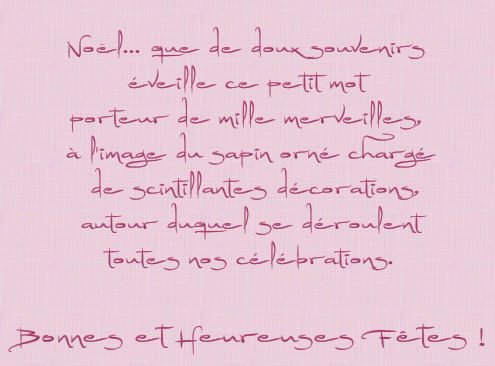 Noël... que de doux souvenirs
éveille ce petit mot
porteur de mille merveilles,
à l'image du sapin orné chargé
de scintillantes décorations,
autour duquel se déroulent
toutes nos célébrations.
Bonnes et Heureuses Fêtes !